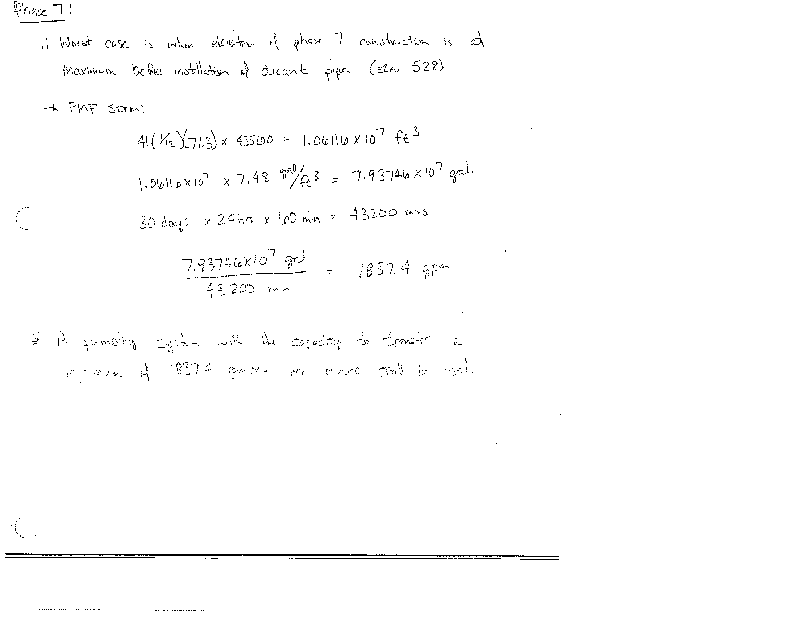 Phase 7:
∴ Worst case is when elevation of phase 7 construction is at
maximum before installation of decant pipes (elev 528)
→ PMF Storm:
41(1/12)(71.3) x 43560 = 1.06116 x 10^7 ft^3
1.06116x10^7 x 7.48 gal/ft^3 = 7.93746 x 10^7 gal.
30 days x 24 hrs x 60 min = 43200 mins
7.93746x10^7 gal
43,200 min
= 1837.4 gpm
A pumping system with the capacity to transfer a
of 1837.4 must be used.